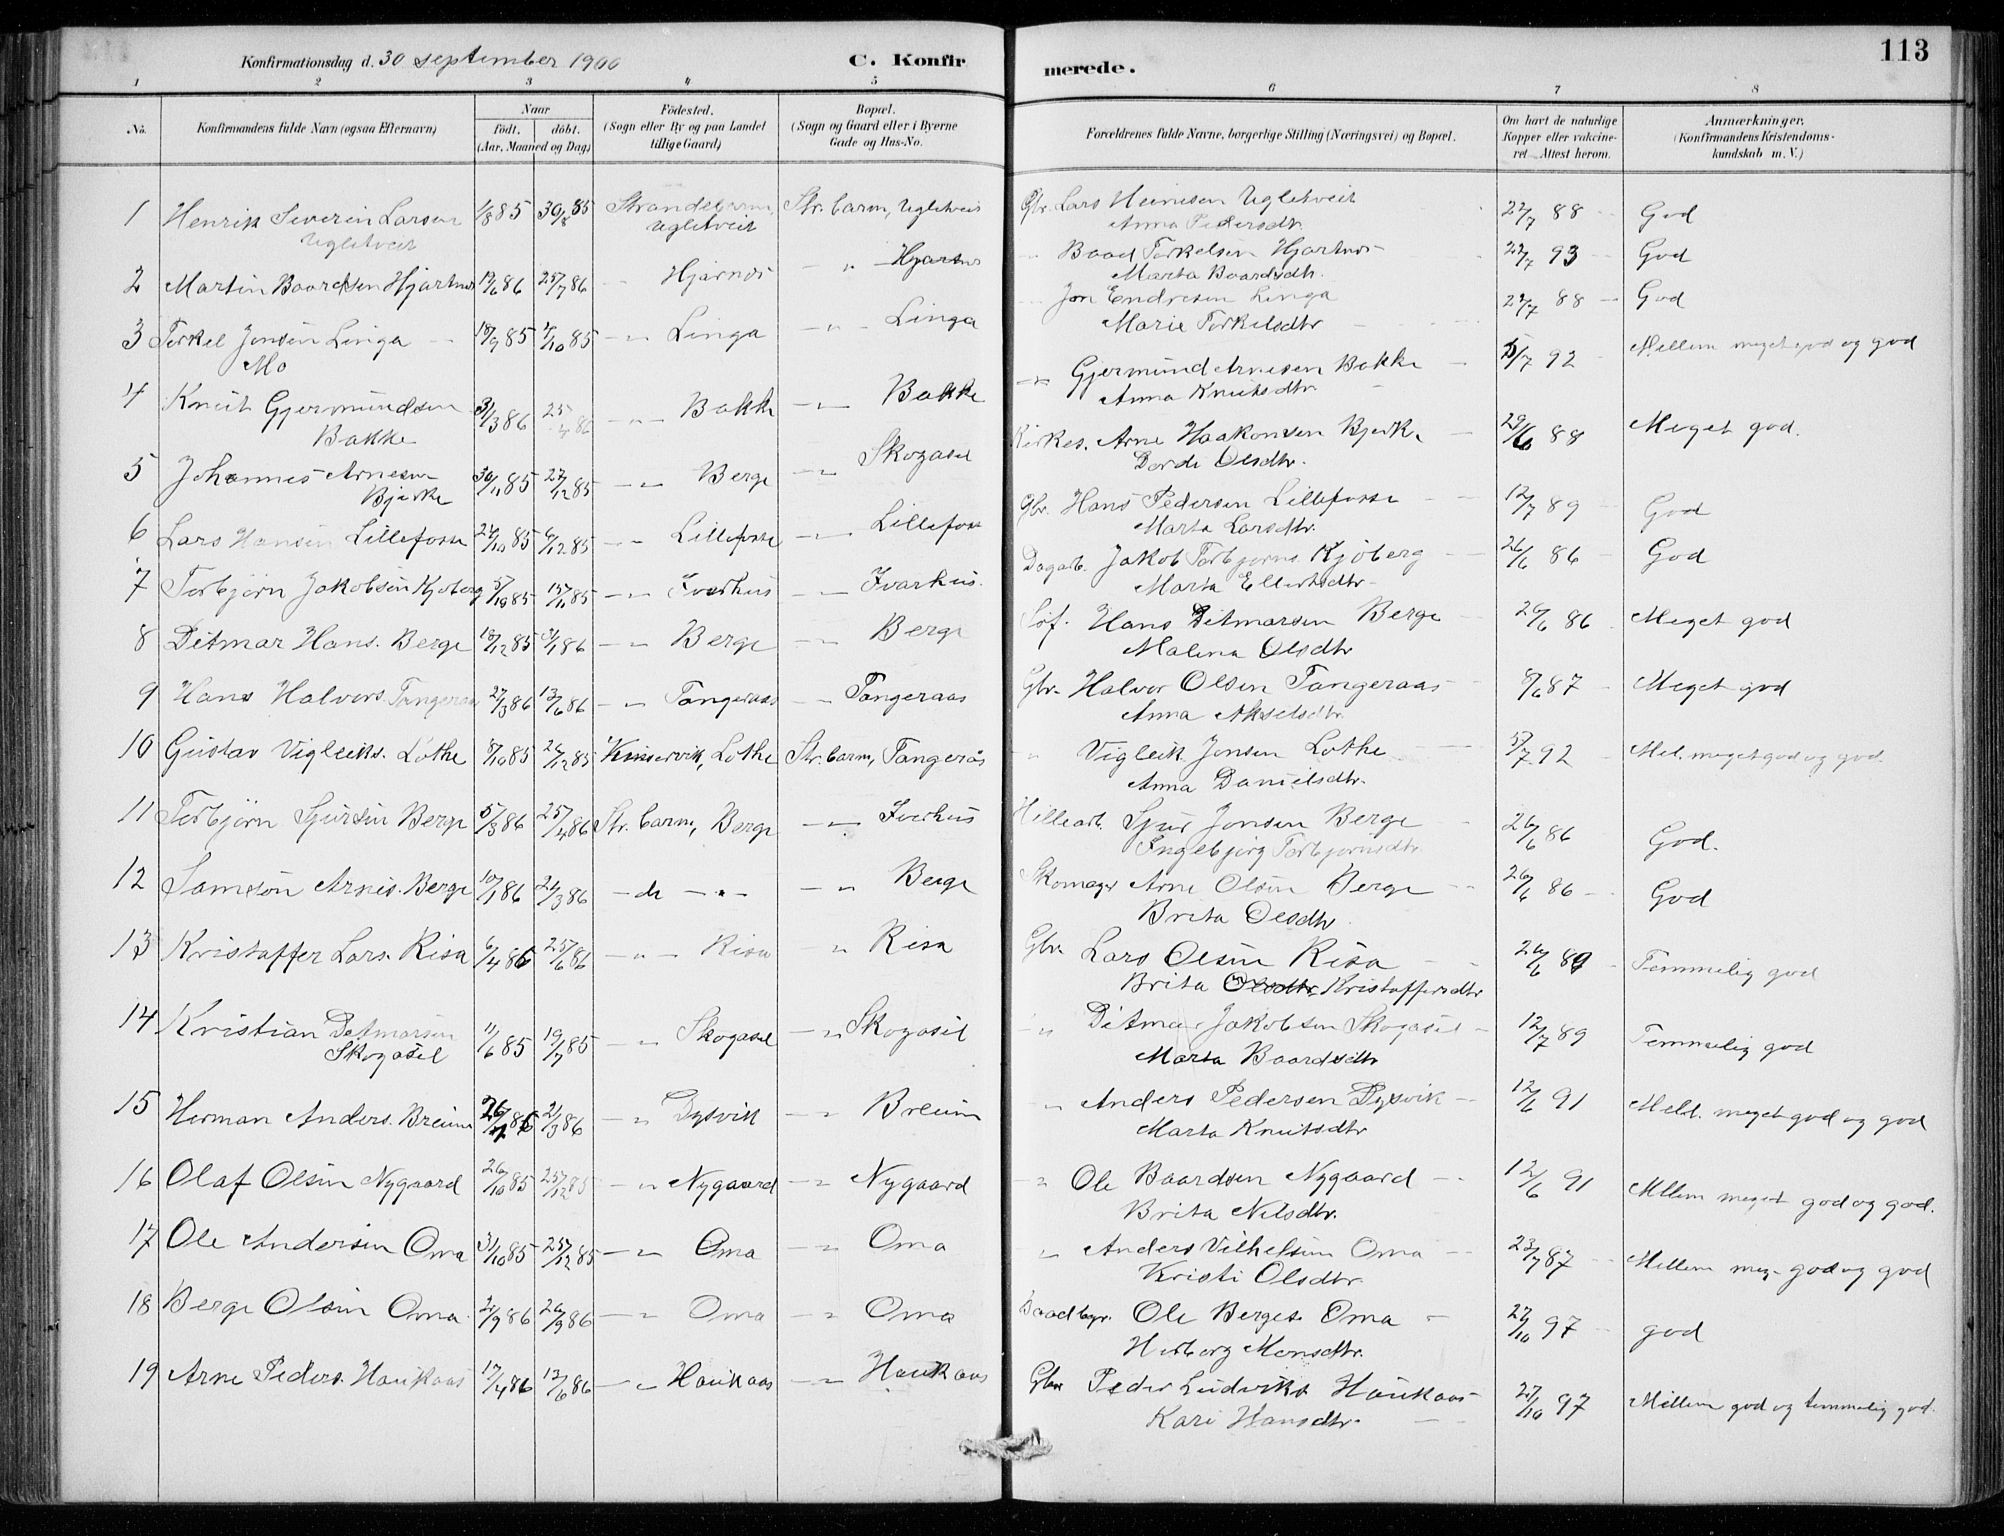 113
Konfirmationsdag d. 30 september 1900
C. Konfirmerede.
1 2 3 4 5 6 7 8
No.
Konfirmandens fulde Navn (ogsaa Efternavn)
Naar
født. døbt.
(Aar, Maaned og Dag)
Fødested.
(Sogn eller By og paa Landet
tillige Gaard)
Bopæl.
(Sogn og Gaard eller i Byerne
Gade og Hus-No.
Forældrenes fulde Navne, borgerlige Stilling (Næringsvei) og Bopæl.
Om havt de naturlige
Kopper eller vakcine-
ret Attest herom.
Anmærkninger.
(Konfirmandens Kristendoms-
kundskab m. V.)
1 Henrik Severin Larsen 1/8 85 30/8 85 Strandebarm, Str. barm, Ugletveit Gbr. Lars Heinesen Ugletveit 22/7 88 God
Ugletveit Ugletveit Anna Pedersdtr.
2 Martin Baardsen Hjartnes 19/6 86 25/7 86 Hjarnes " Hjartnes Baad Torkelsen Hjartnes 22/7 93 God
Marta Baardsdtr.
3 Torkel Jonsen Linga 18/9 85 4/10 85 " Linga " Linga Jon Endresen Linga 22/7 88 God
Mo Marie Torkelsdtr
4 Knut Gjermundsen 31/3 86 25/4 86 " Bakke " Bakke " Gjermund Arnesen Bakke 5/7 92 Mellem meget god og god
Bakke Anna Knutsdtr
5 Johannes Arnesen 30/11 85 27/12 85 " Berge " Skogasel Kirkes. Arne Haakonsen Bjerke 29/6 88 Meget god.
Bjerke Dordi Olsdtr.
6 Lars Hansen Lillefosse 24/10 85 6/12 85 " Lillefosse " Lillefoss Gbr. Hans Pedersen Lillefosse 12/7 89 God
Marta Larsdtr.
7 Torbjörn Jakobsen Kjoberg 5/10 85 15/11 85 " Iverhus " Ivarhus. Dagarb. Jakob Torbjorns Kjöberg 26/6 86 God
Marta Ellertsdtr
8 Ditmar Hans. Berge 18/12 85 31/1 86 " Berge " Berge Söf. Hans Ditmarsen Berge 26/6 86 Meget god
Malena Olsdtr
9 Hans Halvors. Tangeraas 27/3 86 13/6 86 " Tangeraas " Tangeraas Gbr. Halvor Olsen Tangeraas 8/6 87 Meget god
Anna Akselsdtr.
10 Gustav Vigleiks. Lothe 8/10 85 26/12 85 Kinservik, Lothe Str. barm, Tangerås " Vigleik Jonsen Lothe 5/7 92 Mel. meget god og god
Anna Danielsdtr.
11 Torbjörn Sjursen Berge 5/3 86 25/4 86 Str. barm, Berge " Iverhus Hillearb. Sjur Jonsen Berge 26/6 86 God.
Ingebjorg Torbjornsdtr
12 Samson Arnes. Berge 10/1 86 21/3 86 do " " Berge Skomager Arne Olsen Berge 26/6 86 God
Brita Olsdtr.
13 Kristoffer Lars. Risa 6/4 86 25/6 86 " Risa " Risa Gbr Lars Olsen Risa 26/6 89 Temmelig god
Brita Olsdtr, Kristoffersdtr
14 Kristian Detmarsen 11/6 85 19/7 85 " Skogasel " Skogasel " Ditmar Jakobsen Skogasel 12/7 89 Temmelig god
Skogasel Marta Baardsdtr
15 Herman Anders. Breium 26/1 86 21/3 86 " Dysvik " Breium " Anders Pedersen Dysvik 12/6 91 Mell. meget god og god
Marta Knutsdtr
16 Olaf Olsen Nygaard 26/10 85 25/12 85 " Nygaard " Nygaard " Ole Baardsen Nygaard 12/6 91 Mllem meget god og god.
Brita Nilsdtr.
17 Ole Andersen Oma 31/10 85 25/12 85 " Oma " Oma " Anders Vilhelsen Oma 23/7 87 Mellem meg- god og god
Kristi Olsdtr
18 Berge Olsen Oma 2/9 86 26/9 86 " Oma " Oma Baadbyr. Ole Berges. Oma 27/10 97 god
Herborg Monsdtr.
19 Arne Peders. Haukaas 17/4 86 12/6 86 " Haukaas " Haukaas Gbr Peder Ludviks Haukaas 27/10 97 Mellem god og temmelig god.
Kari Hansdtr.